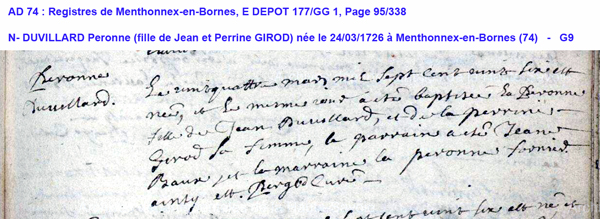 AD 74 : Registres de Menthonnex-en-Bornes, E DEPOT 177/GG 1, Page 95/338
N- DUVILLARD Peronne (fille de Jean et Perrine GIROD) née le 24/03/1726 à Menthonnex-en-Bornes (74) - G9
Peronne
Duvillard.
Le vint quattre mars mil sept cent vint six est
née, et le meme iour a esté baptisée la Peronne
fille de Jean Duvillard, et de la perrine
Girod sa femme, le parrain a esté Jean
et la marraine la peronne
ainsy est. Curé
sept cent vint six est né et